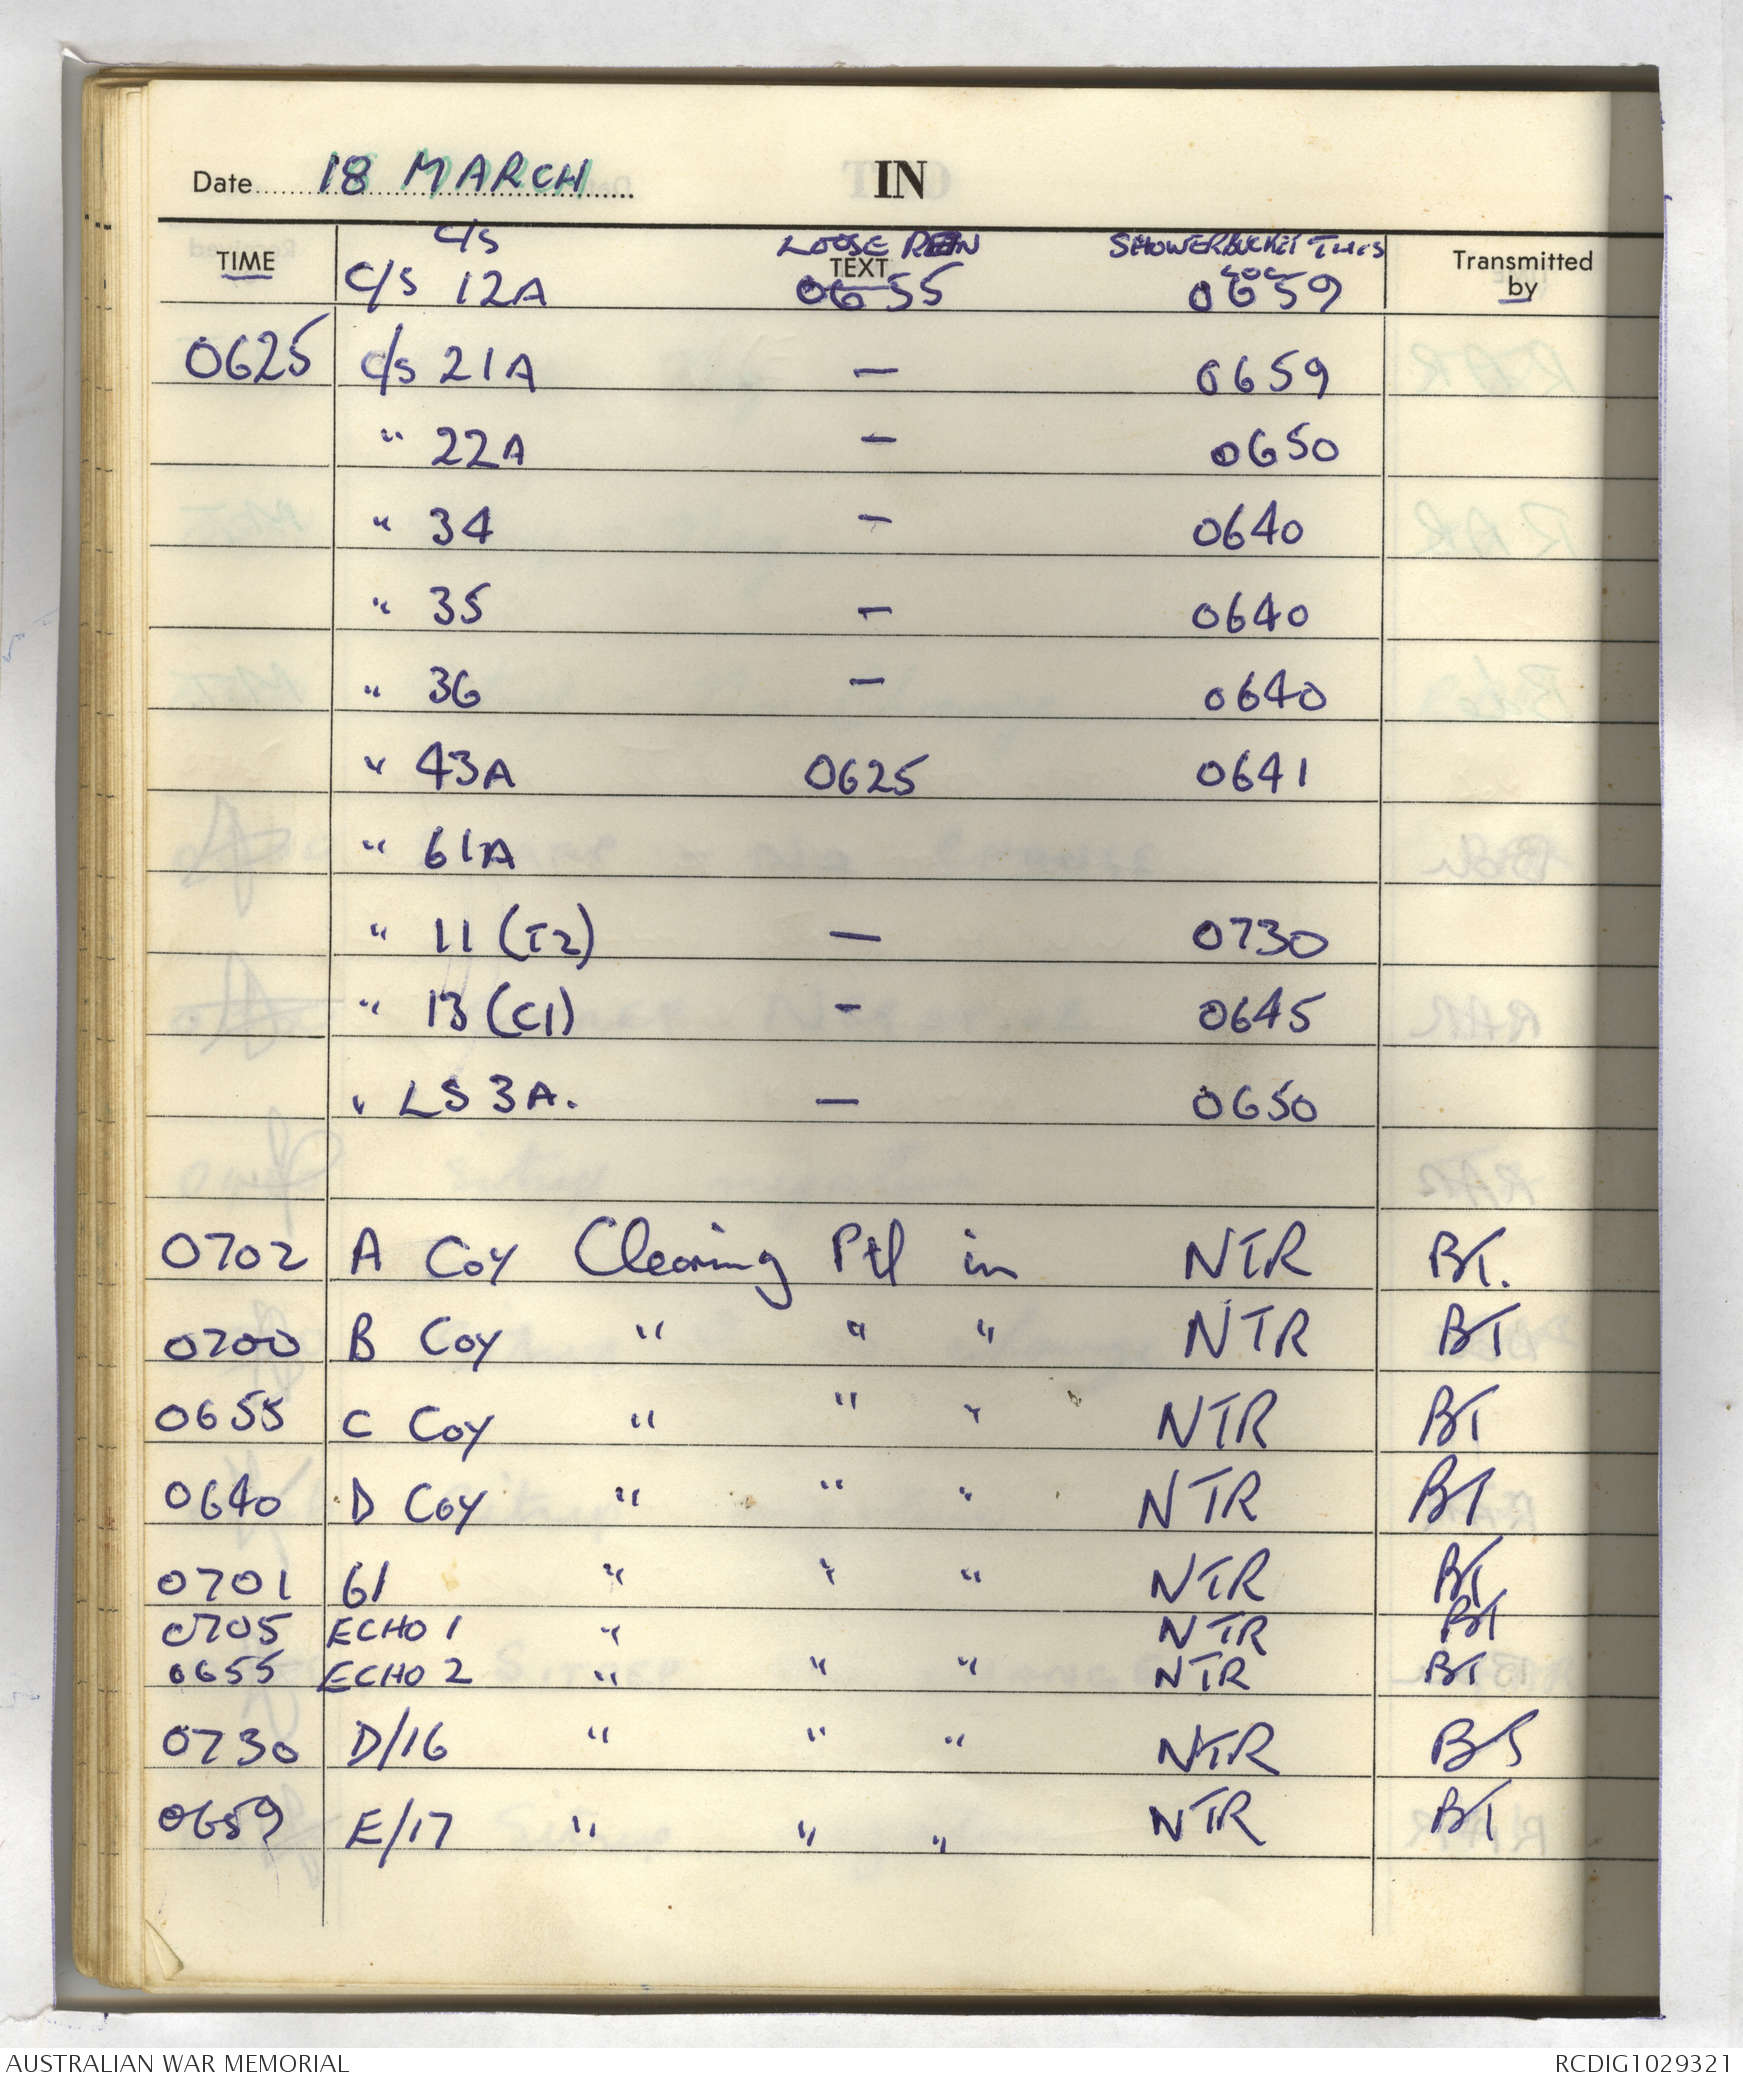 Date 18 MARCH IN
TIME C/S LOOSE REIN TEXT SHOWERBUCKET THIS LOC Transmitted by
C/S 12A 0655 0659
0625 C/S 21A — 0659
" 22A — 0650
" 34 — 0640
" 35 — 0640
" 36 — 0640
" 43A 0625 0641
" 61A
" 11 (T2) — 0730
" 13 (C1) - 0645
" LS 3A. — 0650
0702 A Coy Clearing Ptl in NTR BT.
0700 B Coy " " " NTR BT
0655 C Coy " " " NTR BT
0640 D Coy " " " NTR BT
0701 61 " " " NTR BT
0705 ECHO 1 " NTR BT
0655 ECHO 2 " " " NTR BT
0730 D/16 " " " NTR BS
0659 E/17 " " " NTR BT
AUSTRALIAN WAR MEMORIAL RCDIG1029321